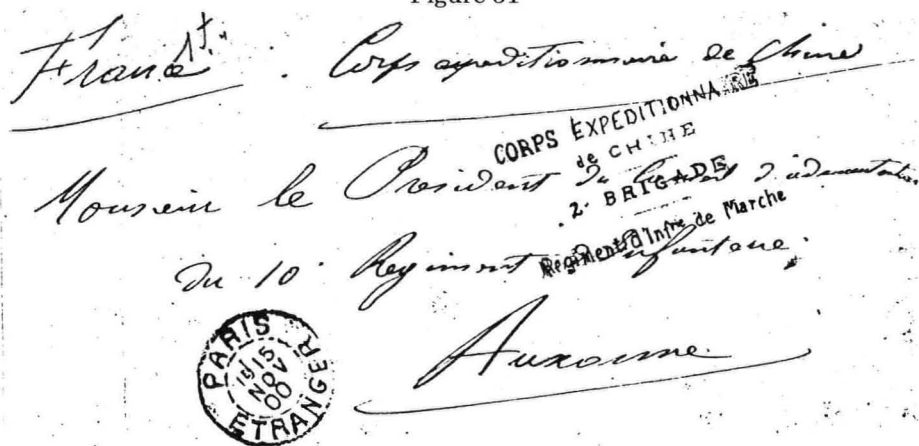 Figure
France 1st. Corps expeditionnaire de Chine
CORPS EXPEDITIONNAIRE
de CHINE
2e BRIGADE
Regiment d'Infre de Marche
Monsieur le President du Conseil d'administration
du 10e Regiment d'infanterie.
Auxonne
PARIS
15
NOV
00
ETRANGER